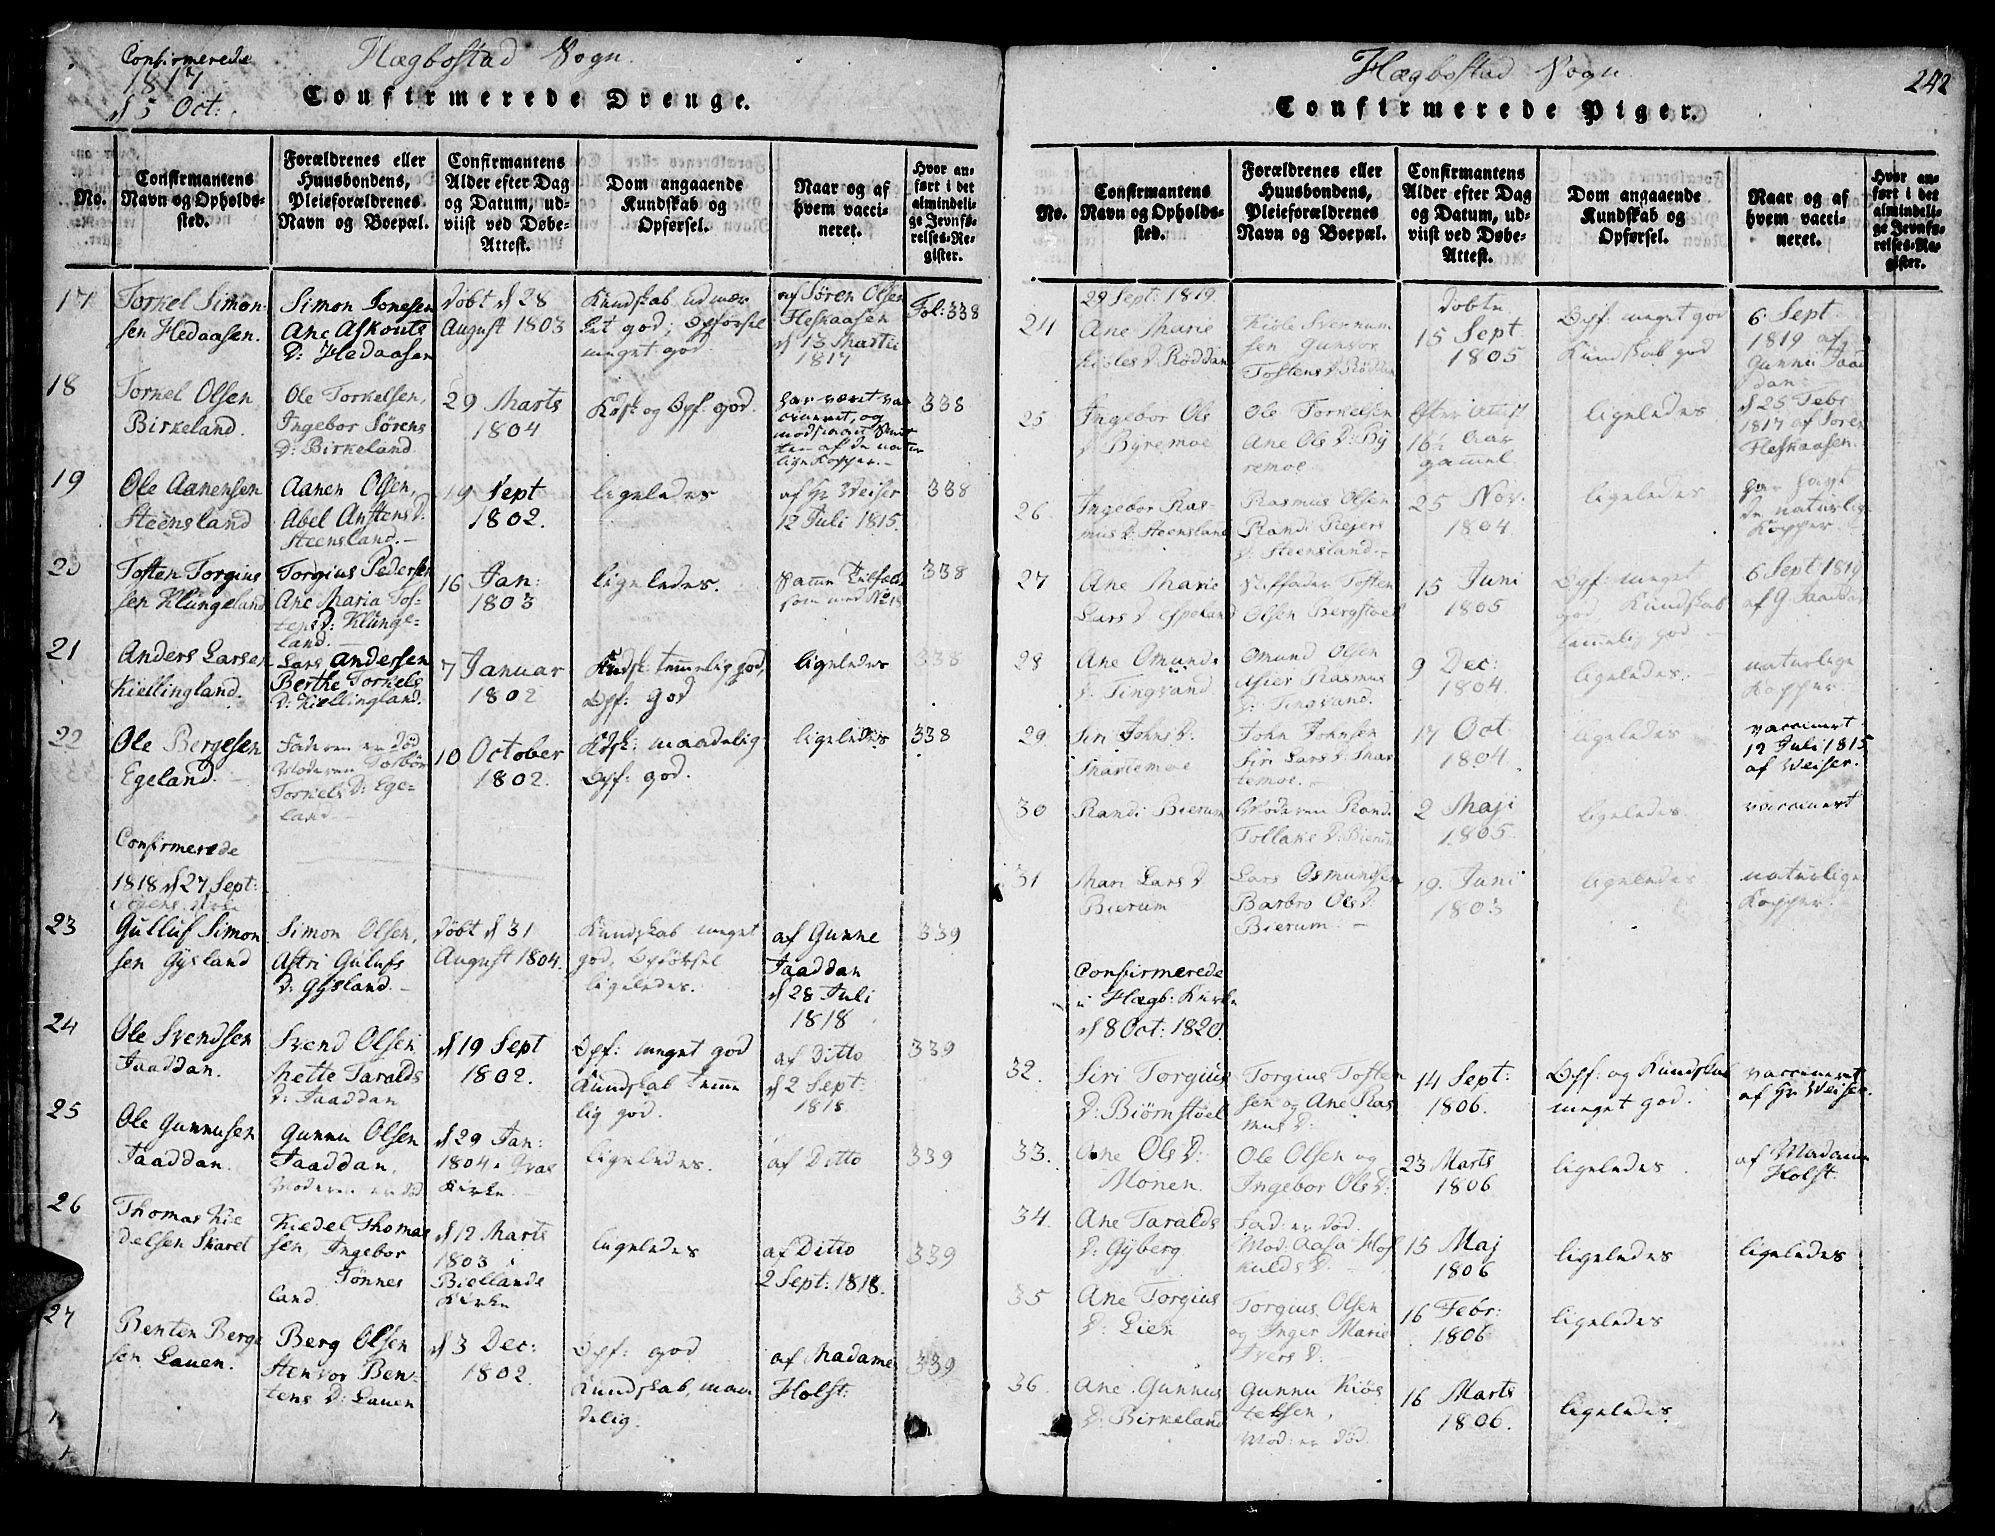 Confirmerede
1817
d 5 Oct:
Hægbostad Sogn.
Confirmerede Drenge.
No.
Confirmantens
Navn og Opholds-
sted.
Forældrenes eller
Huusbondens,
Pleieforældrenes
Navn og Boepæl.
Confirmantens
Alder efter Dag
og Datum, ud-
viist ved Døbe-
Attest.
Dom angaaende
Kundskab og
Opførsel.
Naar og af
hvem vacci-
neret.
Hvor an-
ført i det
almindeli-
ge Jevnfø-
relses-Re-
gister.
17
Torkel Simon-
sen Hedaasen.
Simon Jonesen
Ane Askouts
D: Hedaasen
døbt d 28
August 1803
Kundskab udmær
ket god, Opførsel
meget god.
af Søren Olsen
Heskaasen
d 13 Martii
1817
Fol: 338
18
Torkel Olsen
Birkeland.
Ole Torkelsen,
Ingebor Sørens
D: Birkeland
29 Marts
1804
Kdsk og Opf: god.
har været vac
cineret, og
modstaaet
af de natur
lige Kopper.
338
19
Ole Aanensen
Steensland
Aanen Olsen,
Abel Anstens D:
Steensland.
19 Sept
1802.
ligeledes
af Hr Weiser
12 Juli 1815.
338
20
Tosten Torgius
sen Klungeland
Torgius Pedersen
Ane Maria Tos-
tens D: Klunge-
land.
16 Jan:
1803
ligeledes.
Samme Tilfælde
som med No 18
338
21
Anders Larsen
Kiellingland.
Lars Andersen
Berthe Torkels
D: Kiellingland.
7 Januar
1802
Kndsk: temelig god,
Opf: god
ligeledes
338
22
Ole Bergesen
Egeland.
Faderen er død
Moderen Torbor
Torkels D: Ege-
land
10 October
1802.
Kdsk: maadelig
Opf: god.
ligeledes
338
Confirmerede
1818 d 27 Sept:
23
Gulluf Simon
sen Gysland
Simon Olsen,
Astri Gulufs
D: Gysland.
døbt d 31
August 1804.
Kundskab meget
god, Opførsel
ligeledes.
af Gunne
Jaaddan
d 28 Juli
1818
339
24
Ole Svendsen
Jaaddan.
Svend Olsen
Mette Taralds
D: Jaaddan
d 19 Sept
1802.
Opf: meget god
Kundskab teme
lig god.
af Ditto
d 2 Sept:
1818
339
25
Ole Gunnusen
Jaaddan.
Gunnu Olsen
Jaaddan,
Moderen er død
d 29 Jan:
1804 i Qvas
Kirke
ligeledes.
af Ditto
339
26
Thomas Kie
delsen Skaret
Kiedel Thomas
sen, Ingebor
Tønnes
land.
d 12 Marts
1803 i
Biellands
Kirke
ligeledes
af Ditto
2 Sept: 1818.
339
27
Benten Berge
sen Lauen.
Berg Olsen
Stenvor Ben-
tens D: Lauen
d 3 Dec:
1802.
Opf: god
Kundskab, maa
delig.
af Madame
Holst.
339
Hægbostad Sogn
242
Confirmerede Piger.
No.
Confirmantens
Navn og Opholds-
sted.
Forældrenes eller
Huusbondens,
Pleieforældrenes
Navn og Boepæl.
Confirmantens
Alder efter Dag
og Datum, ud-
viist ved Døbe-
Attest.
Dom angaaende
Kundskab og
Opførsel.
Naar og af
hvem vacci-
neret.
Hvor an-
ført i det
almindeli-
ge Jevnfø-
relses-Re-
gister.
29 Sept: 1819.
24
Ane Marie
Kioles D: Røddan
Kiole Svennum
sen Gunvor
Tostens D: Røddan
døbte
15 Sept
1805
Opf: meget god
Kundskab god
6 Sept
1819 af
Gunne Jaad
dan
25
Ingebor Ols
D: Byremoe
Ole Torkelsen
Ane Ols D: By
remoe
Efter Attest
16½ Aar
gamel
ligeledes
d 25 Febr
1817 af Søren
Heskaasen.
26
Ingebor Ras-
mus D: Steensland
Rasmus Olsen
Randi Reiers
D: Steensland.
25 Nov.
1804
ligeledes
har havt
de naturlige
Kopper.
27
Ane Marie
Lars D: Espeland
Stiffader Tosten
Olsen Bergstoel
15 Juni
1805
Opf: meget
god Kundskab
temelig god
6 Sept 1819
af G. Jaaddan
28
Ane Omunds
D: Tingvand.
Omund Olsen
Asier Rasmus
D: Tingvand.
9 Dec:
1804.
ligeledes.
naturlige
Kopper
29
Siri Johns D:
Snartemoe
John Johnsen
Siri Lars D: Snar
temoe.
17 Oct
1804.
ligeledes
vaccineret
12 Juli 1815
af Weiser.
30
Randi Bierum
Moderen Randi
Tollaks D: Bierum
2 Maji
1805.
ligeledes.
vaccineret
31
Mari Lars D
Bierum
Lars Osmundsen
Barbro Ols D:
Bierum.
19. Juni
1803
ligeledes
naturlige
Kopper.
Confirmerede
i Hægb: Kirke
d 8 Oct: 1820.
32.
Siri Torgius
D: Biørnstoel
Torgius Tosten
sen og Ane Ras
mus D:
14 Sept:
1806.
Opf: og Kundskab
meget god.
vaccineret
af Hr Weiser.
33.
Ane Ols D:
Monen.
Ole Olsen og
Ingebor Ols D:
23 Marts
1806
ligeledes
af Madame
Holst:
34.
Ane Taralds
D: Gyberg
Fad: er død.
Mod: Aasa Hos
kulds D:
15 Maj
1806
ligeledes
ligeledes
35
Ane Torgius
D: Lien
Torgius Olsen
og Inger Marie
Ivers D:
16 Febr:
1806
ligeledes
36.
Ane Gunnus
D: Birkeland
Gunnu Kiøs
telsen,
Mod: er død.
16 Marts
1806.
ligeledes.